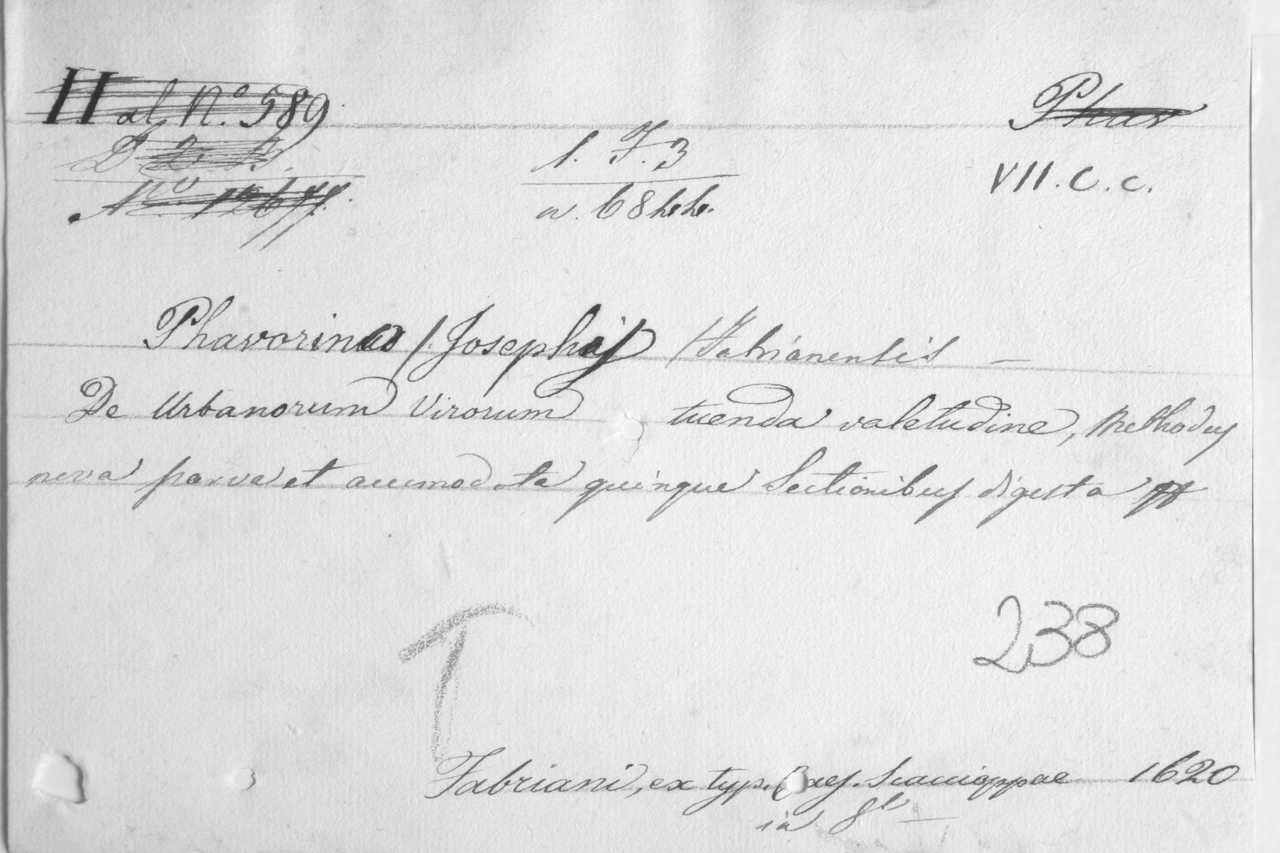 H al. N.º 589
1. F. 3
Phar
VII. C. c.
Phavorino (Josephi) Fabrianensis —
De Urbanorum Virorum tuenda valetudine, Methodus
nova parva et accmodata quinque Sectionibus digesta
T
238
Fabriani, ex typ. Caes. Scaccioppae 1620
in 8º —